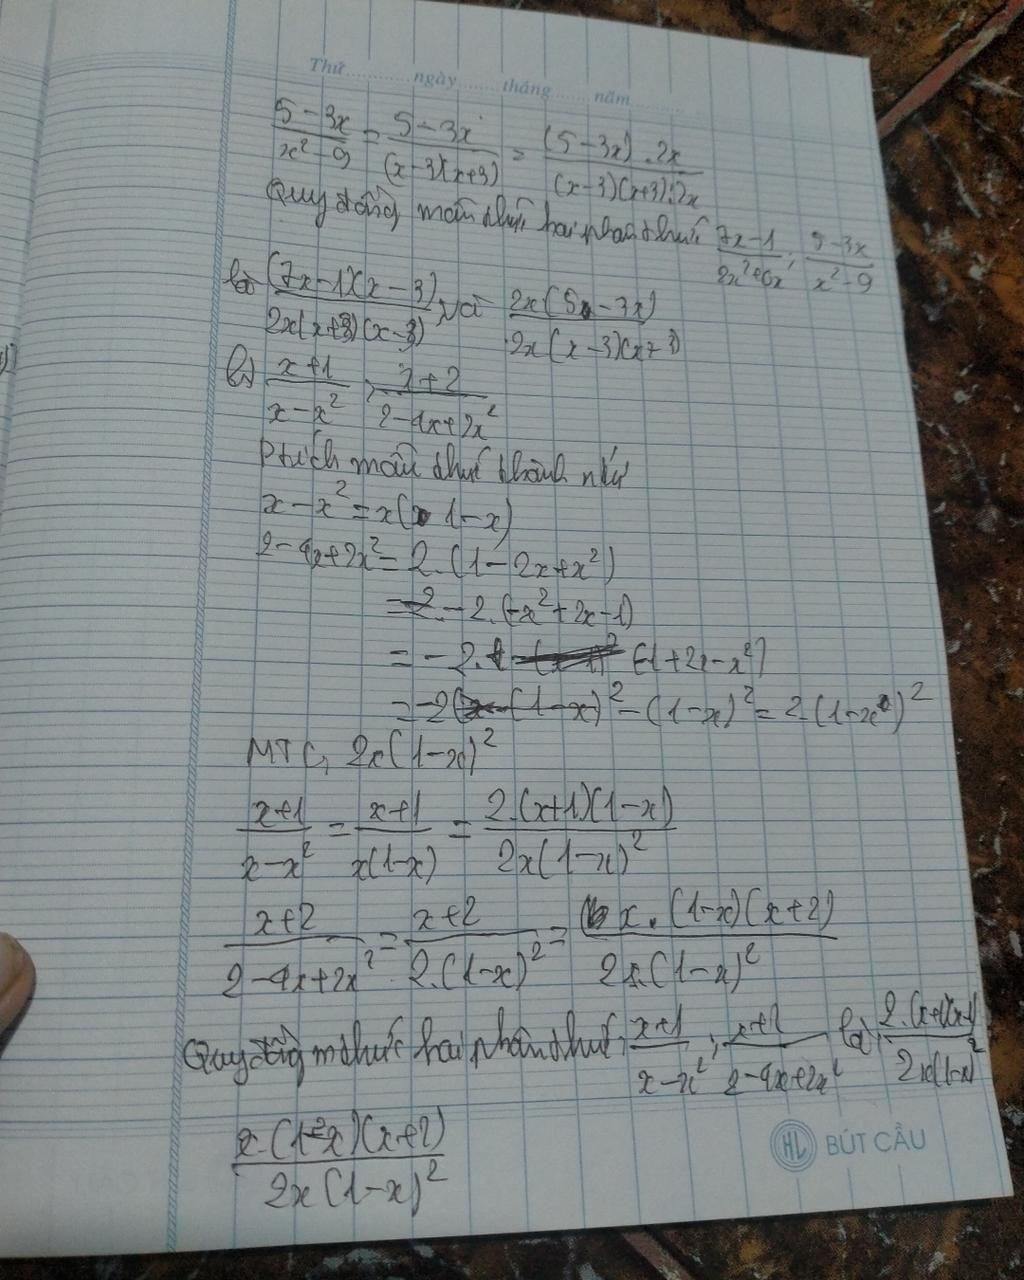 Thứ ........ ngày ........ tháng ........ năm ........
(5 - 3x)/(x² - 9) = (5 - 3x)/((x - 3)(x + 3)) = ((5 - 3x).2x)/((x - 3)(x + 3).2x)
Quy đồng mẫu thức hai phân thức (7x - 1)/(2x² + 6x); (5 - 3x)/(x² - 9)
là ((7x - 1)(x - 3))/(2x(x + 3)(x - 3)) và (2x(5 - 3x))/(2x(x - 3)(x + 3))
b) (x + 1)/(x - x²); (x + 2)/(2 - 4x + 2x²)
Ptích mẫu thức thành ntử
x - x² = x(1 - x)
2 - 4x + 2x² = 2.(1 - 2x + x²)
= -2.(-x² + 2x - 1)
= -2. (-1 + 2x - x²)
= -2 (1 - x)² - (1 - x)² = 2.(1 - x)²
MTC, 2x(1 - x)²
(x + 1)/(x - x²) = (x + 1)/(x(1 - x)) = (2.(x + 1)(1 - x))/(2x(1 - x)²)
(x + 2)/(2 - 4x + 2x²) = (x + 2)/(2.(1 - x)²) = (x.(1 - x)(x + 2))/(2x.(1 - x)²)
Quy đồng m thức hai phân thức (x + 1)/(x - x²); (x + 2)/(2 - 4x + 2x²) là (2.(x + 1)(x - 1))/(2x(1 - x)²)
(x.(1 - x)(x + 2))/(2x(1 - x)²)
HL BÚT CẦU